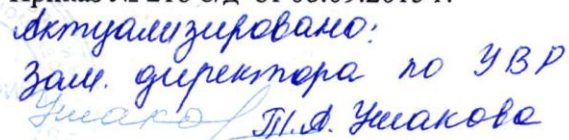 Актуализировано:
Зам. директора по УВР
Т.А. Ушакова